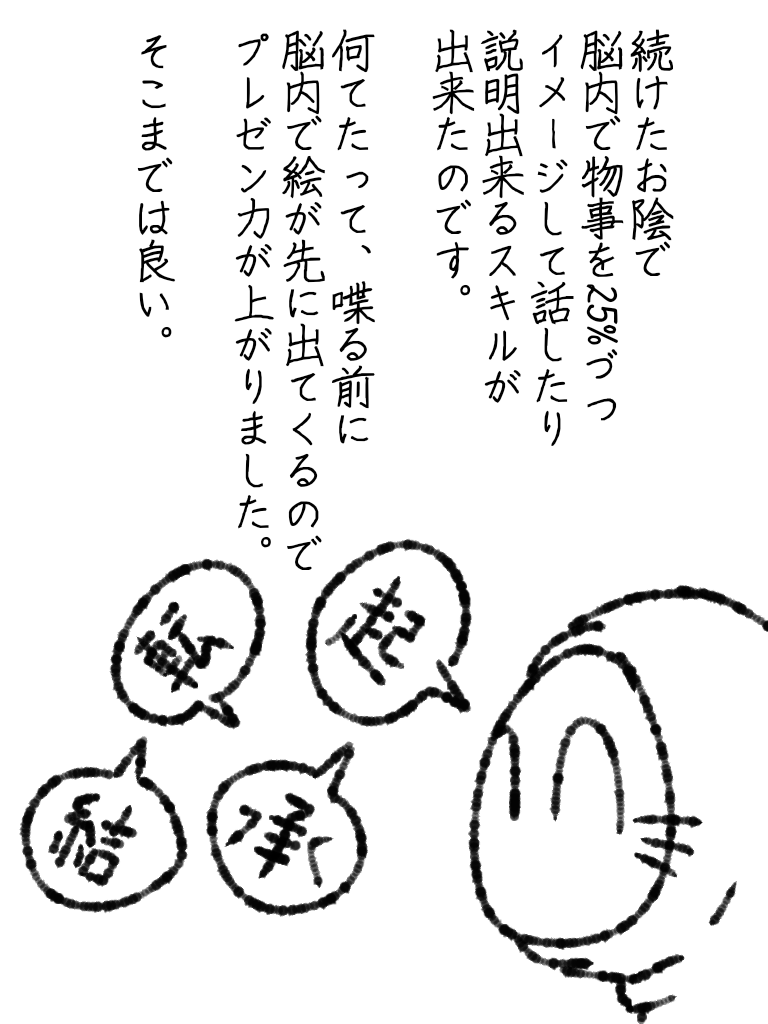 続けたお陰で
脳内で物事を25%づつ
イメージして話したり
説明出来るスキルが
出来たのです。
何てたって、喋る前に
脳内で絵が先に出てくるので
プレゼン力が上がりました。
そこまでは良い。
起
承
転
結